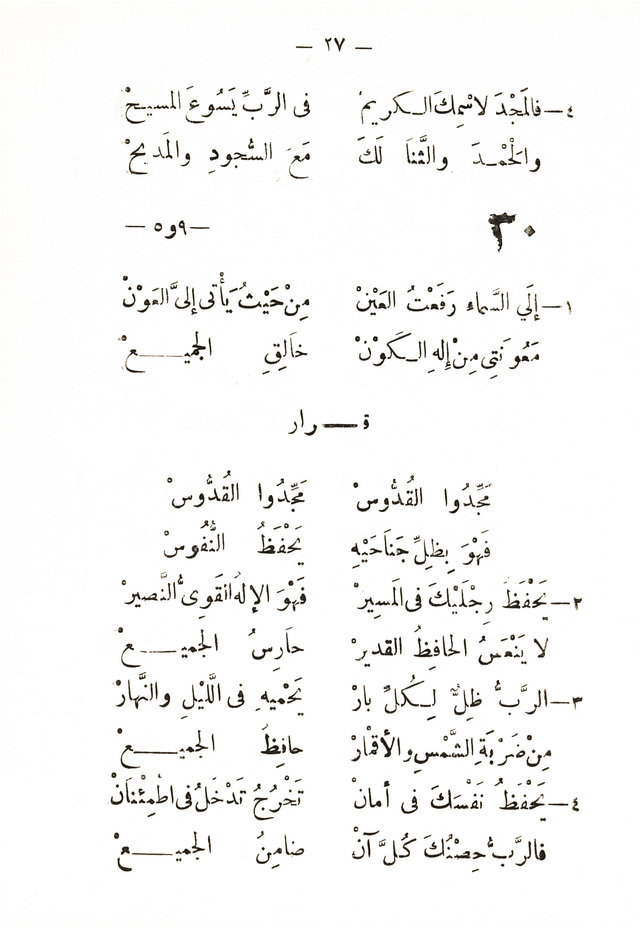 — ٢٧ —
٤— فالمَجْدَ لاسْمِكَ الكريمْ في الرَّبِّ يَسُوعَ المسيحْ
والحَمْدَ والثَّنا لَكَ مَعَ السُّجودِ والمَديحْ
٣٠ — ٩و٥ —
١— إلَي السَّماءِ رَفَعْتُ العَيْنْ مِنْ حَيْثُ يَأْتى إلىَّ العَوْنْ
مَعُونَتِى مِنْ إلهِ الكَوْنْ خَالِقِ الجميعْ
قرار
مَجِّدُوا القُدُّوسْ مَجِّدُوا القُدُّوسْ
فَهْوَ بِظلِّ جَناحَيْهِ يَحْفَظُ النُّفُوسْ
٢— يَحْفَظَ رِجْلَيْكَ فى المَسِيرْ فَهْوَ الإلهُ القَوِىُّ النَّصيرْ
لا يَنْعَسُ الحافِظُ القديرْ حارِسُ الجميعْ
٣— الرَّبُّ ظِلٌّ لِكُلِّ بارْ يَحْميهِ فى اللَّيْلِ والنَّهارْ
مِنْ ضَرْبَةِ الشَّمْسِ والأقْمارْ حافِظُ الجميعْ
٤— يَحْفَظُ نَفْسَكَ فى أمانْ تَخْرُجُ تَدْخُلُ فى اطْمِئْنانْ
فالرَّبُّ حِصْنُكَ كُلَّ آنْ ضامِنُ الجميعْ